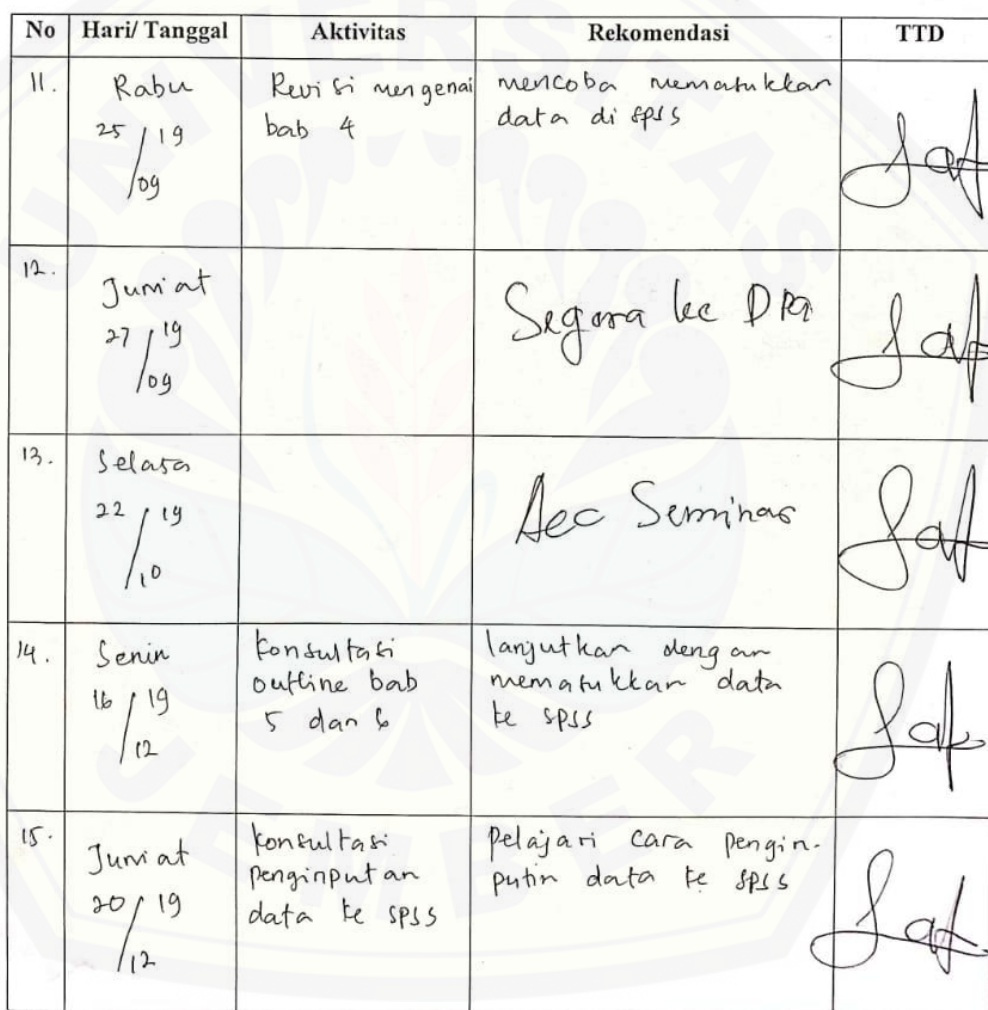 No Hari/ Tanggal Aktivitas Rekomendasi TTD
11. Rabu 25/19/09
Revisi mengenai
bab 4
mencoba memasukkan
data di spss
12. Jum'at 27/19/09
Segera ke DPA
13. Selasa 22/19/10
Acc Seminar
14. Senin 16/19/12
konsultasi
outline bab
5 dan 6
lanjutkan dengan
memasukkan data
ke spss
15. Jum'at 20/19/12
konsultasi
penginputan
data ke spss
Pelajari cara pengin-
putin data ke spss
UNIVERSITAS
JEMBER